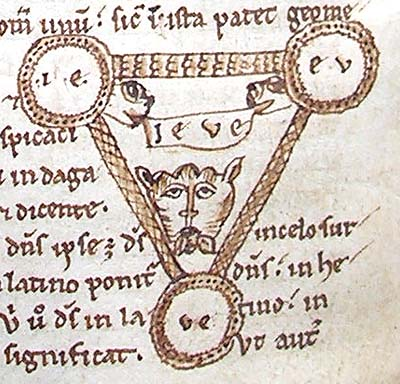 unū: sic ista patet geome
.ı.e. e v
ı e v e
spicaci
in daga
dicente.
dn̄s ip̄se ⁊ ds̄ in celo sur
latino ponit̄ dn̄s: in he
ds̄ in la tino: in
ve
significat. vt aut̄